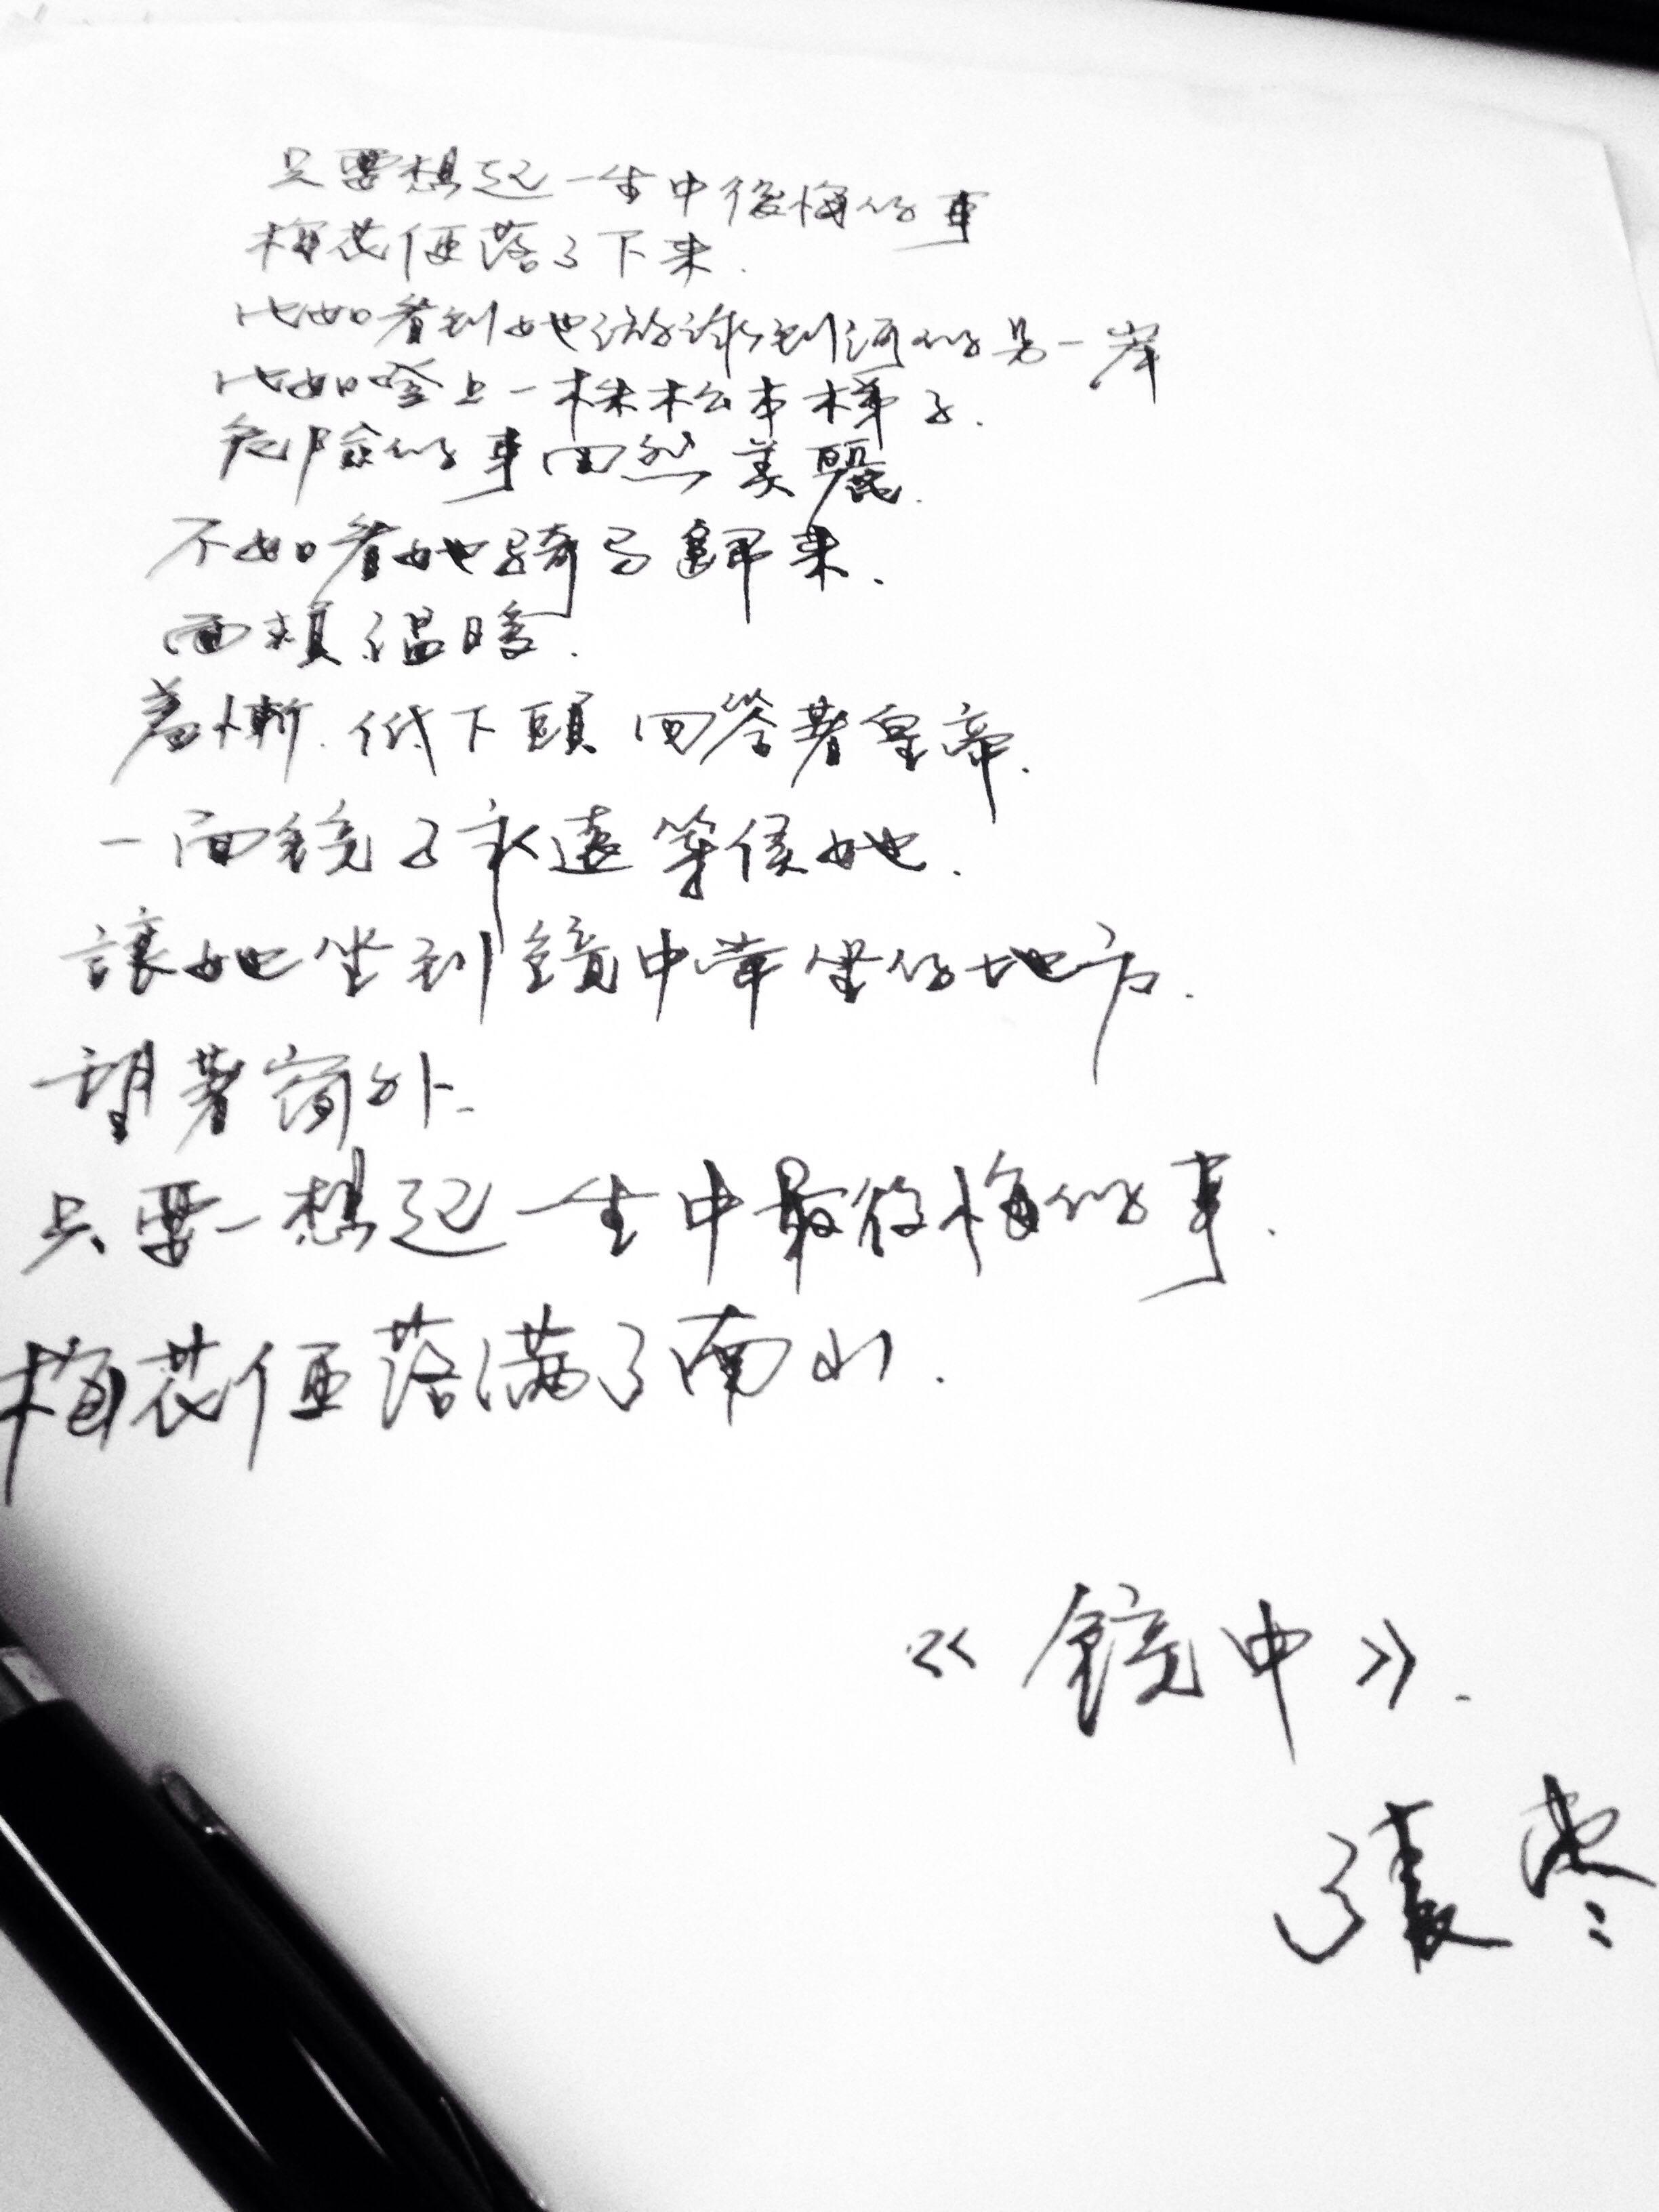 只要想起一生中後悔的事
梅花便落了下来.
比如看到她游泳到河的另一岸
比如登上一株松木梯子.
危险的事固然美麗.
不如看她骑马歸来.
面頰温暖.
羞慚.低下頭回答著皇帝.
一面鏡子永遠等候她.
讓她坐到鏡中常坐的地方.
望著窗外.
只要一想起一生中最後悔的事.
梅花便落满了南山.
《鏡中》.
張枣